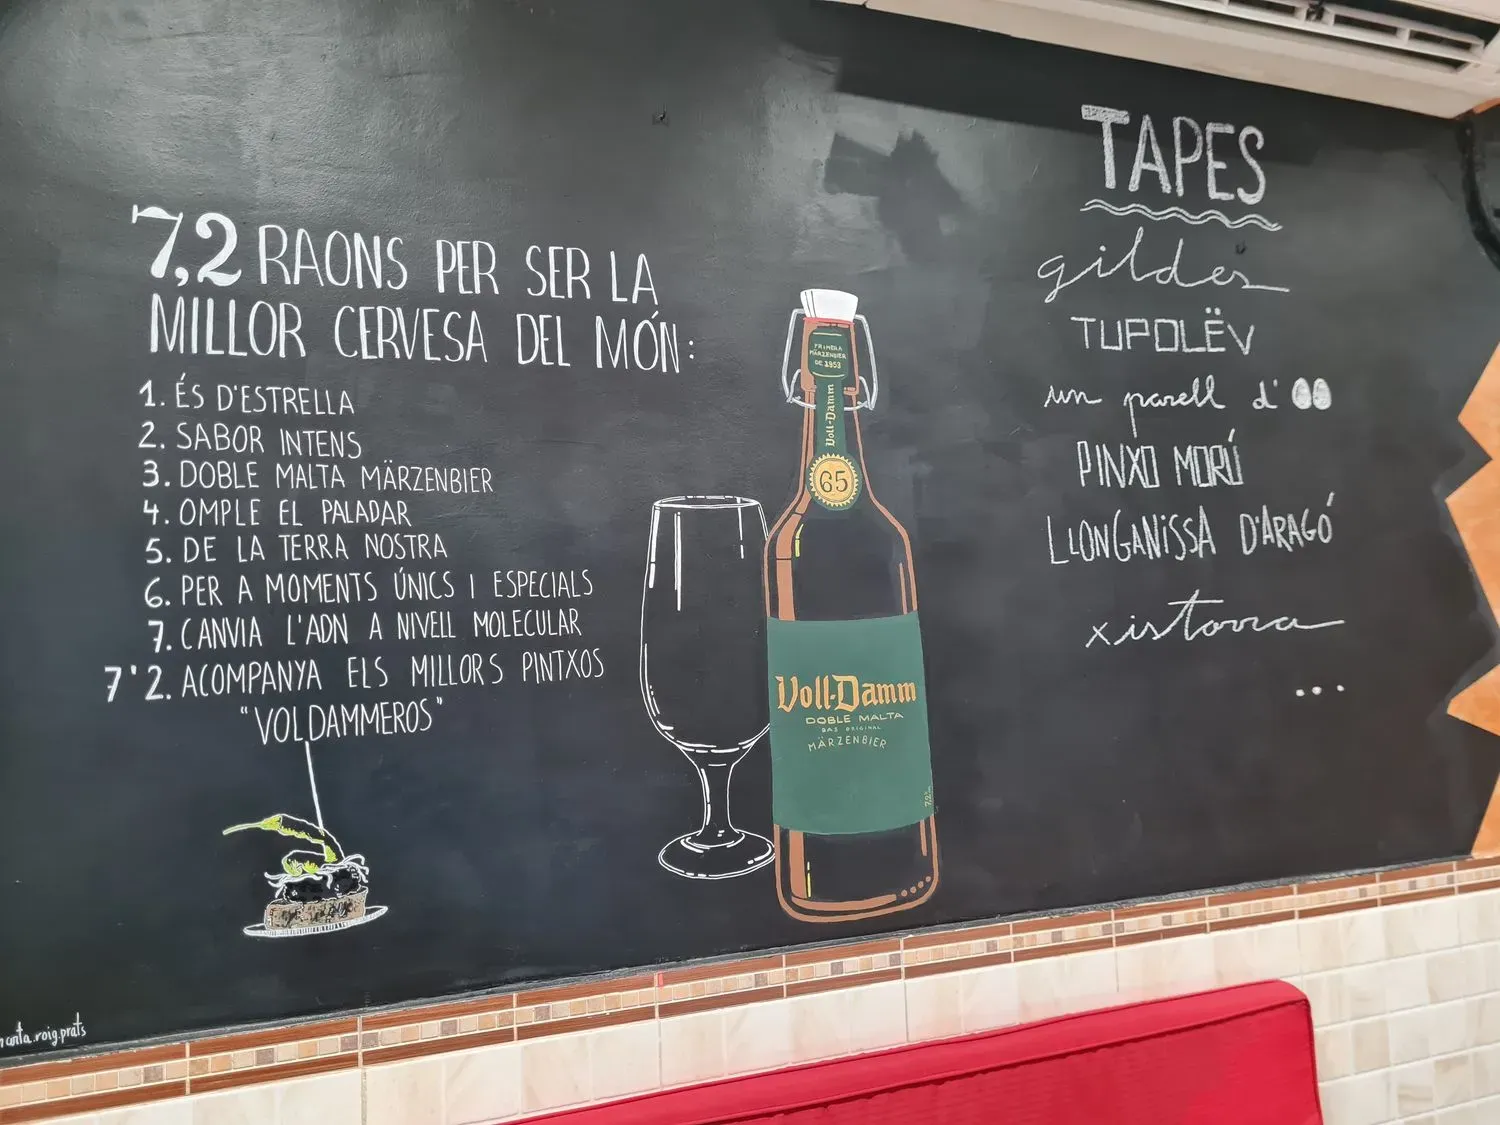 7,2 RAONS PER SER LA
MILLOR CERVESA DEL MÓN:
1. ÉS D'ESTRELLA
2. SABOR INTENS
3. DOBLE MALTA MÄRZENBIER
4. OMPLE EL PALADAR
5. DE LA TERRA NOSTRA
6. PER A MOMENTS ÚNICS I ESPECIALS
7. CANVIA L'ADN A NIVELL MOLECULAR
7'2. ACOMPANYA ELS MILLORS PINTXOS
"VOLDAMMEROS"
PRIMERA
MÄRZENBIER
DE 1953
Voll-Damm
65
Voll-Damm
DOBLE MALTA
DAS ORIGINAL
MÄRZENBIER
7,2%
TAPES
gildes
TUPOLËV
un parell d'
PINXO MORÚ
LLONGANISSA D'ARAGÓ
xistorra
...
marta.roig.prats